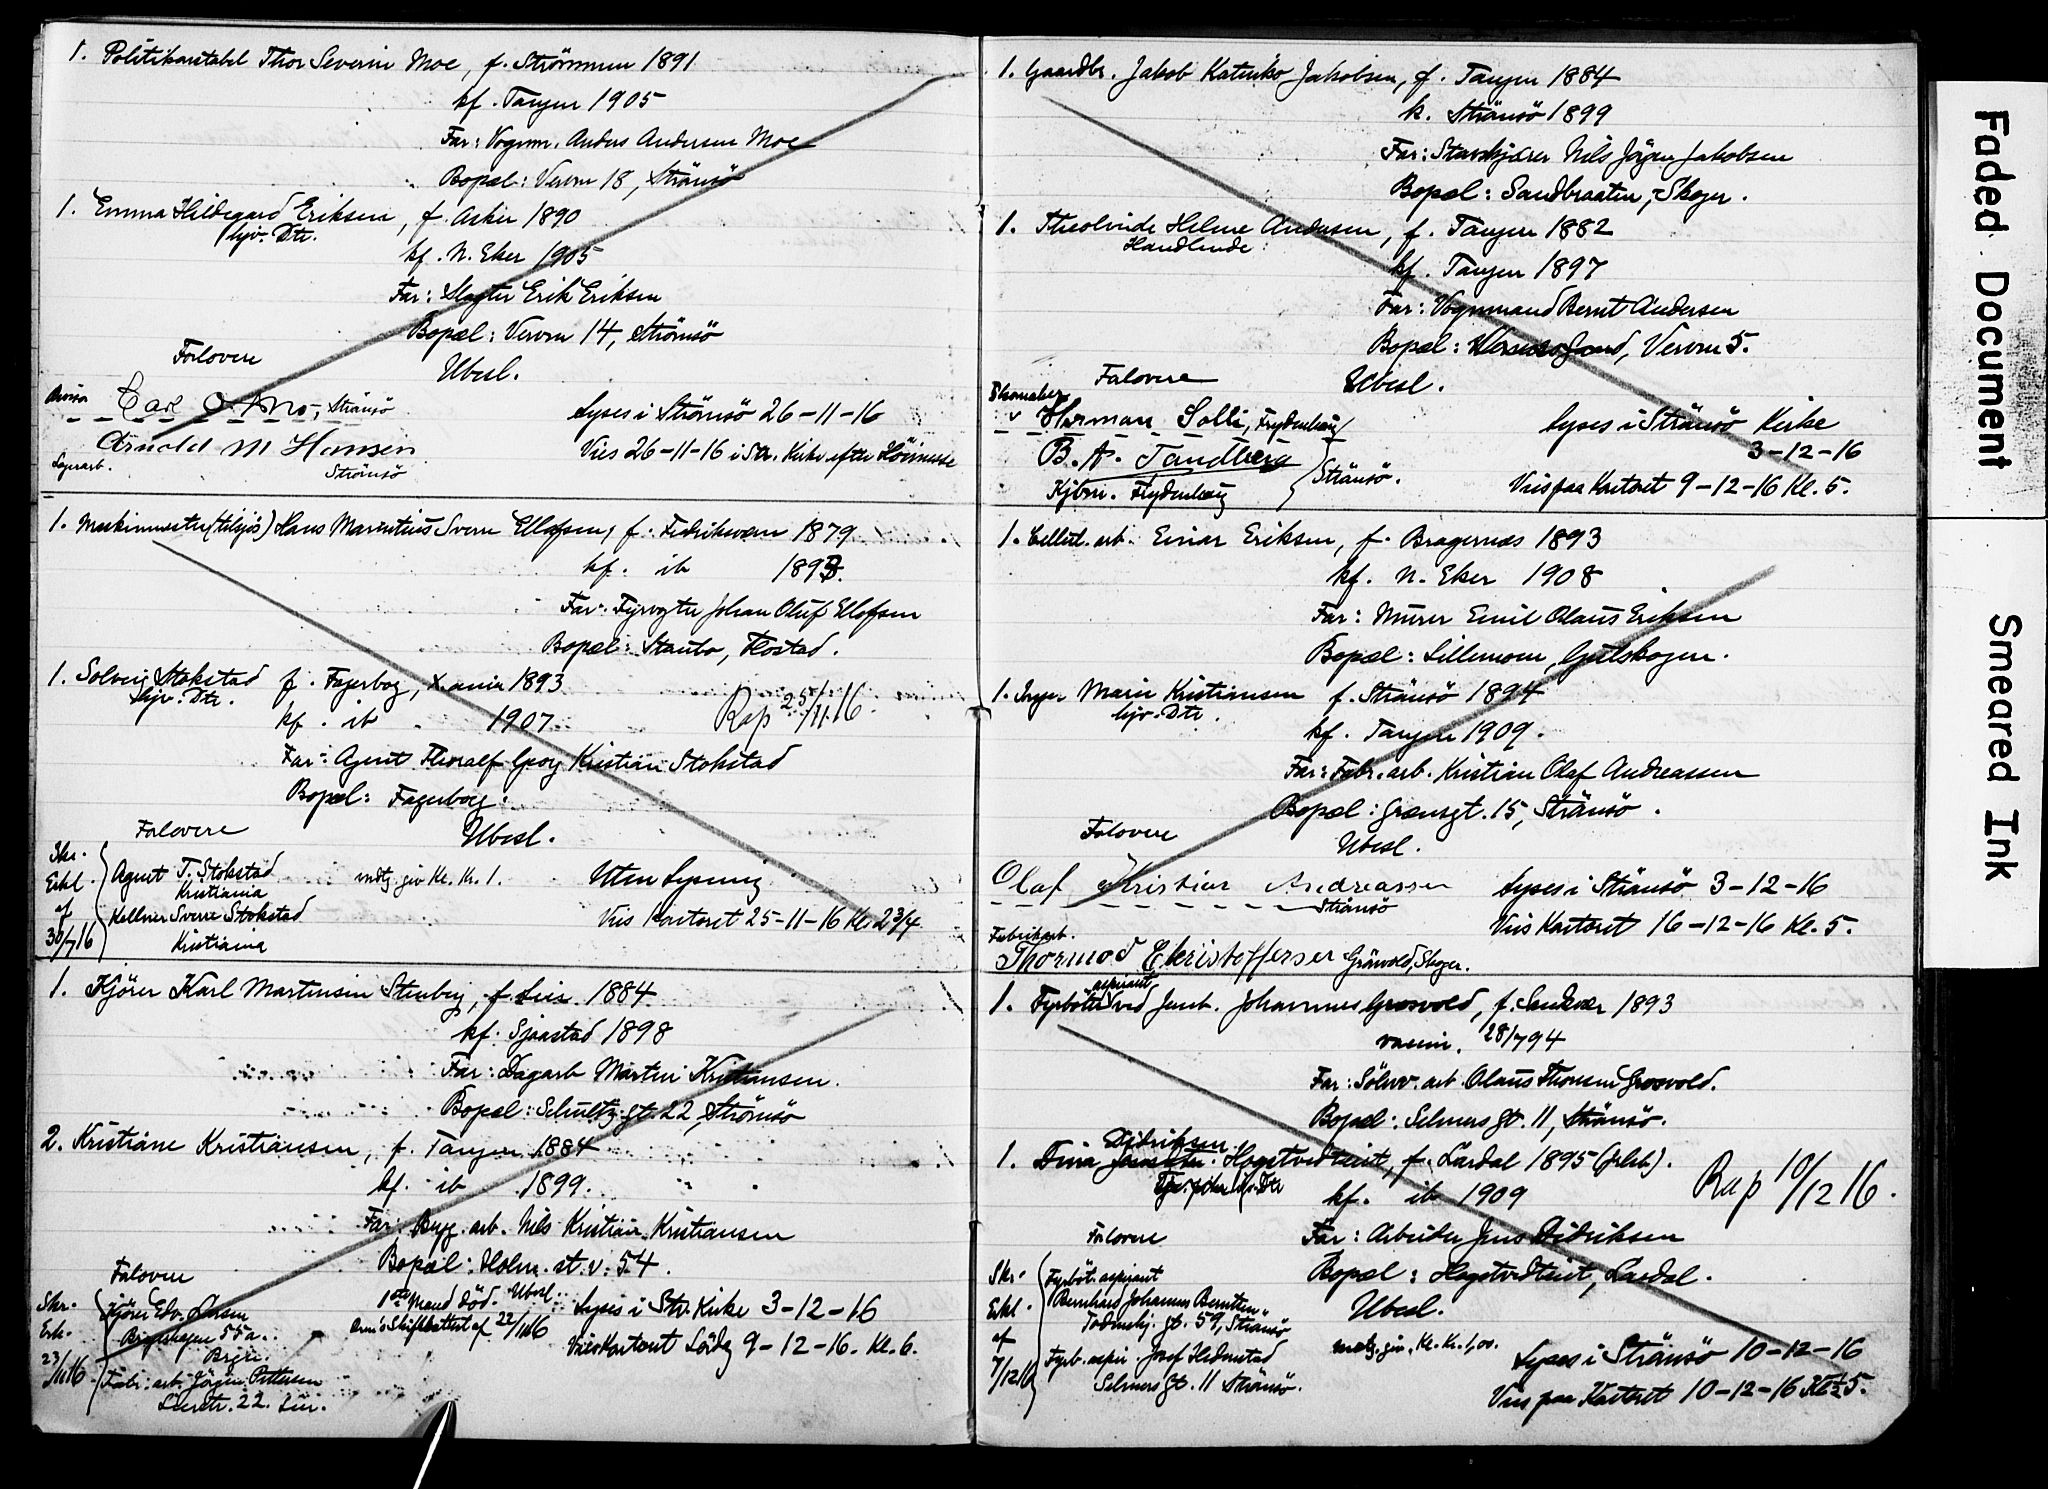 1. Politikonstabel Thor Severin Moe, f. Strömmen 1891
kf. Tangen 1905
Far: Vognm. Anders Andersen Moe
Bopæl: Vervn 18, Strömsö
1. Emma Hildegard Eriksen, f. Asker 1890
hjv. Dtr.
kf. N. Eker 1905
Far: Slagter Erik Eriksen
Bopæl: Vervn 14, Strömsö
Forlovere
Ubesl.
Carl O. Mo, Strömsö
Lyses i Strömsö 26-11-16
Arnold M Hansen
Lagerarb.
Strömsö
Vies 26-11-16 i Str. Kirke efter Höimesse
1. Maskinmester (tilsjös) Hans Marentius Sverre Ellefsen, f. Fredriksværn 1879
kf. ib 1893.
Far: Fyrvogter Johan Oluf Ellefsen
Bopæl: Staubo, Flostad.
1. Solveig Stokstad f. Fagerborg, X.ania 1893
hjv. Dtr.
kf. ib 1907
Rap 25/11.16.
Far: Agent Thoralf Georg Kristian Stokstad
Bopæl: Fagerborg.
Forlovere
Ubesl.
Skr. Erkl. af 30/7 16
Agent T. Stokstad
Kristiania
Kellner Sverre Stokstad
Kristiania
mdtg. giv Kl. Kr. 1.
Uten Lysning
Vies Kontoret 25-11-16 Kl. 2 3/4
1. Kjörer Karl Martinsen Stenberg, f. Lier 1884
kf. Sjaastad 1898
Far: Dagarb Martin Kristiansen.
Bopæl: Schultz gt. 22, Strömsö
2. Kristiane Kristiansen, f. Tangen 1884
kf. ib 1899.
Far: Byg. arb. Nils Kristian Kristiansen
Bopæl: Holm. st. v. 54.
Forlovere
1ste Mand död. Ubesl.
Skr. Erk. 23/11 16
Kjörer Edv. Larsen
55a.
Brgn.
Skifteattest af 22/11 16
Lyses i Str. Kirke 3-12-16
Vies Kontoret Lördg 9-12-16. Kl. 6.
Fabr. arb. Jörgen Pettersen
Lierstr. 22. Lier.
1. Gaardbr. Jakob Katinko Jakobsen, f. Tangen 1884
k. Strömsö 1899
Far: Stavskjærer Nils Jörgen Jakobsen
Bopæl: Sandbraaten, Skoger.
1. Theolinde Helene Andersen, f. Tangen 1882
Handlende
kf. Tangen 1897
Far: Vognmand Bernt Andersen
Bopæl: Vervn 5.
Forlovere
Ubesl.
Skomaker
Herman Solli, Frydenhaug
Lyses i Strömsö Kirke
3-12-16
B. A. Tandberg
Strömsö.
Kjbm. Frydenhaug
Vies paa Kontoret 9-12-16 Kl. 5.
1. Cellul. arb. Einar Eriksen, f. Bragernæs 1893
kf. N. Eker 1908
Far: Murer Emil Olaus Eriksen
Bopæl: Lillemoen, Gulskogen.
1. Inger Marie Kristiansen f. Strömsö 1894
hjv. Dtr.
kf. Tangen 1909.
Far: Fabr. arb. Kristian Olaf Andreassen
Bopæl: Grænsgt. 15, Strömsö.
Forlovere
Ubesl.
Olaf Kristian Andreassen
Strömsö
Lyses i Strömsö 3-12-16
Fabrikarb.
Vies Kontoret 16-12-16 Kl. 5.
Thormod Ekristoffersen Grönvold, Skoger.
aspirant
1. Fyrböter ved Jernb. Johannes Grosvold, f. Sandsvær 1893
vaccin. 28/7 94
Far: Sölvv. arb. Olaus Thorsen Grosvold.
Bopæl: Selmers gt. 11, Strömsö.
Didriksen
1. Dina Hogstvedteiet, f. Lardal 1895 (f. Feb.).
kf. ib 1909
Rap 10/12 16.
Forlovere
Far: Arbeider Jens Didriksen
Bopæl: Hogstvedteiet, Lardal.
Skr. Erkl. af 7/12 16
Fyrböt. aspirant
Bernhard Johannes Berntsen
gt. 59, Strömsö
Ubesl.
Fyrb. aspir. Josef Hedenstad
Selmers gt. 11 Strömsö.
mdtg. giv. Kl. Kr. 1,00.
Lyses i Strömsö 10-12-16
Vies paa Kontoret 10-12-16 Kl ½ 5.
Faded Document
Smeared Ink